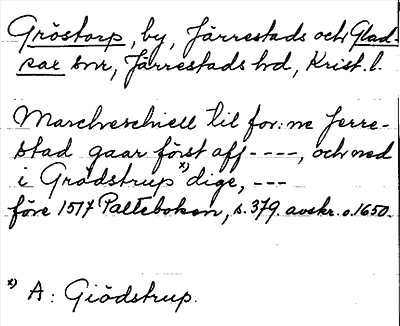 Gröstorp, by, Järrestads och Glad-
sax snr, Järrestads hd, Krist. l.
Marcheschiell til for:ne Jerre-
stad gaar först aff ----, och ned
i Grødstrup x) dige, ---
före 1517 Palteboken, s. 379. avskr. o. 1650.
x) A: Giödstrup.